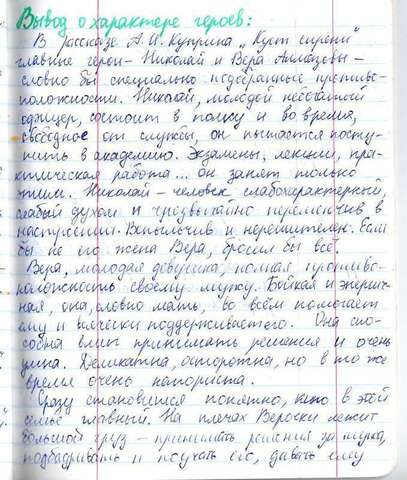 Вывод о характере героев:
В рассказе А.И. Куприна „Куст сирени"
главные герои – Николай и Вера Алмазовы –
словно бы специально подобранные противо-
положности. Николай, молодой небогатый
офицер, состоит в полку и во время,
свободное от службы, он пытается посту-
пить в академию. Экзамены, лекции, пра-
ктическая работа... он занят только
этим. Николай – человек слабохарактерный,
слабый духом и чрезвычайно переменчив в
настроении. Вспыльчив и нерешителен. Если
бы не его жена Вера, бросил бы всё.
Вера, молодая девушка, полная противо-
положность своему мужу. Бойкая и энергич-
ная, она, словно мать, во всём помогает
ему и всячески поддерживает его. Она спо-
собна сама принимать решения и очень
умна. Деликатна, осторожна, но в то же
время очень напориста.
Сразу становится понятно, кто в этой
семье главный. На плечах Верочки лежит
большой груз – принимать решения за мужа,
подбадривать и поучать его, давать ему